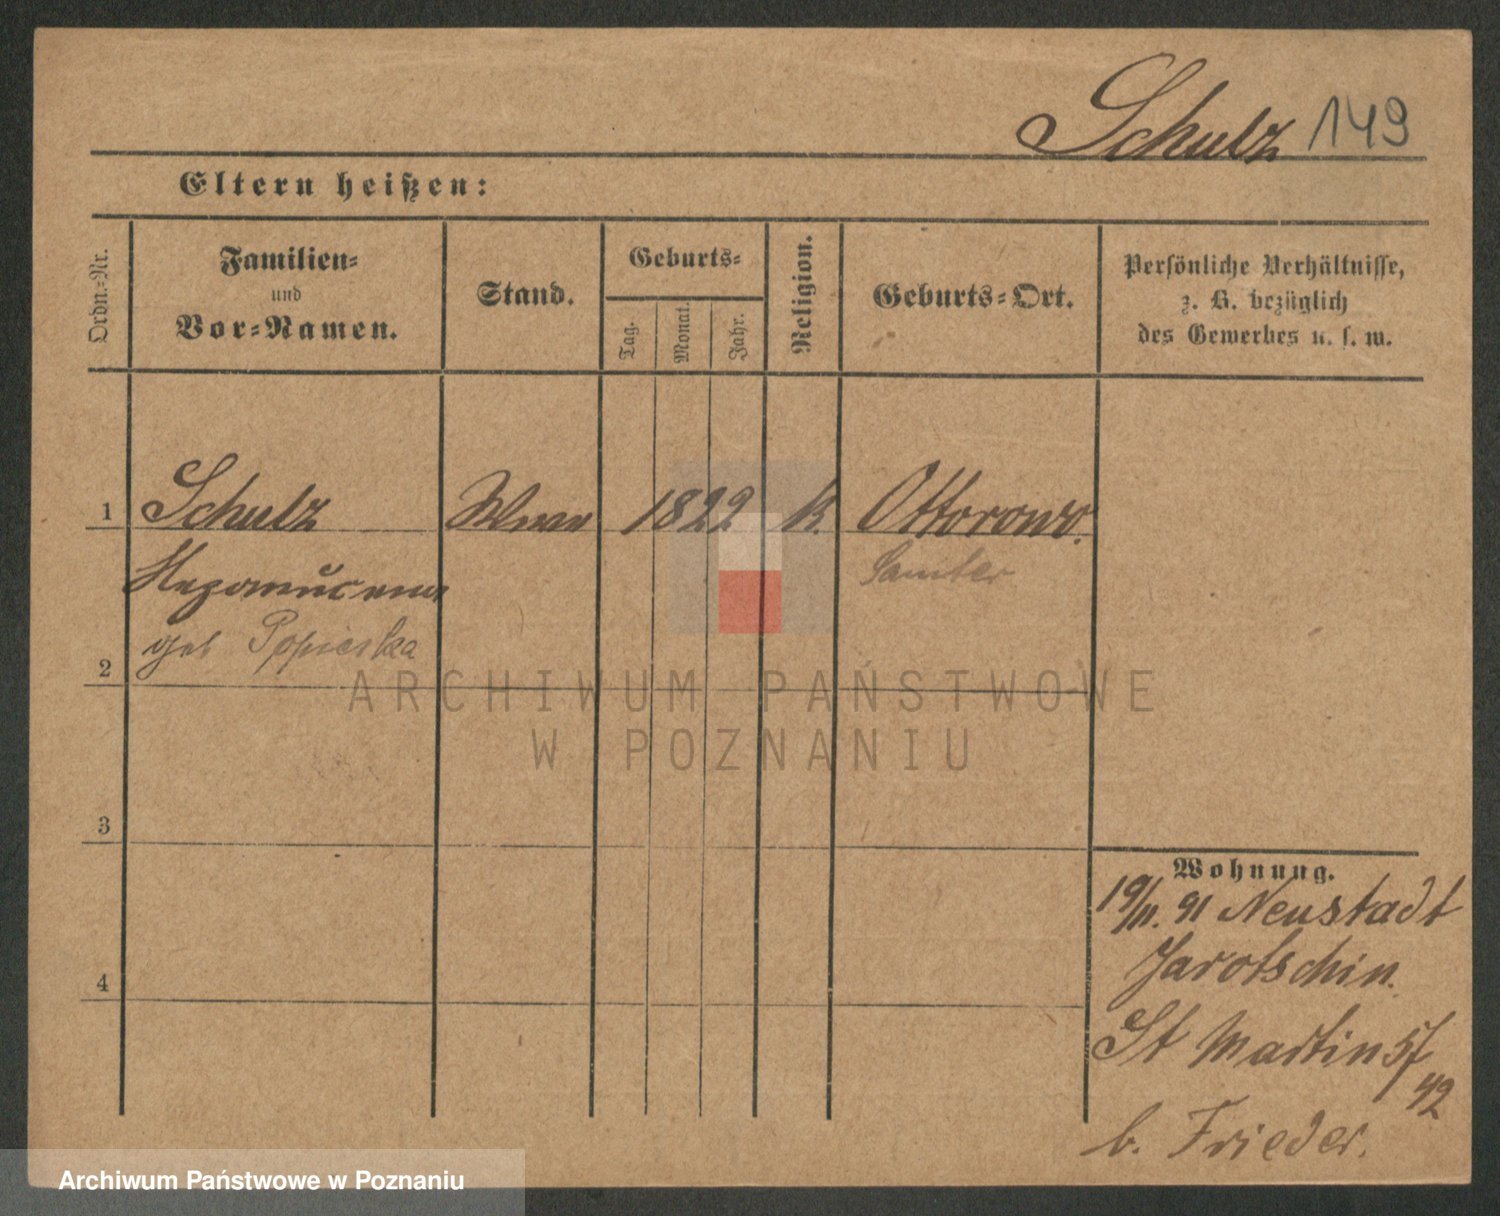 Schulz 149
Eltern heißen:
Ordn.-Nr.
Familien-
und
Vor-Namen.
Stand.
Geburts-
Tag.
Monat.
Jahr.
Religion.
Geburts-Ort.
Persönliche Verhältnisse,
z. B. bezüglich
des Gewerbes u. s. w.
1 Schulz Wwe 1822 k. Ottorowo.
Samter
geb Popieska
2
ARCHIWUM PAŃSTWOWE
W POZNANIU
3
Wohnung.
19/11. 91 Neustadt
Jarotschin.
4
St Martin 57
42
b. Frieder.
Archiwum Państwowe w Poznaniu